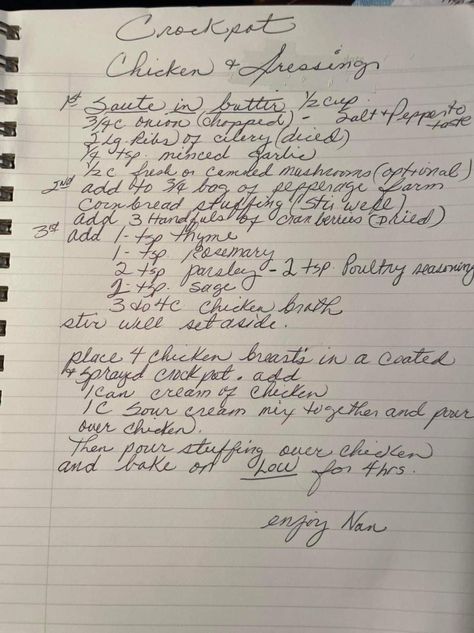 Crockpot
Chicken & Dressing
1st Saute in butter ½ cup
3/4 C onion (chopped) - Salt & Pepper to taste
2 lg Ribs of celery (diced)
1/4 tsp. minced garlic
½ C fresh or canned mushrooms (optional)
2nd add to 3/4 bag of pepperage farm
Cornbread stuffing (stir well)
add 3 Handfuls of cranberries (Dried)
3rd add 1- tsp thyme
1- tsp rosemary
2 tsp parsley - 2 tsp. Poultry seasoning
2- tsp. sage
3 to 4C chicken broth
stir well set aside.
place 4 chicken breasts in a coated
& sprayd crockpot. add
1 can cream of chicken
1 C Sour cream mix together and pour
over chicken.
Then pour stuffing over chicken
and bake on Low for 4 hrs.
enjoy Nan